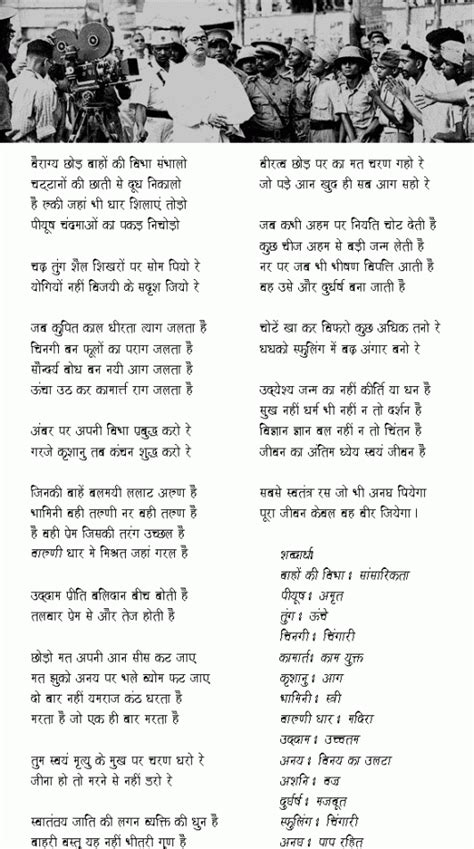 वैराग्य छोड़ बाहों की विभा संभालो
चट्टानों की छाती से दूध निकालो
है रुकी जहां भी धार शिलाएं तोड़ो
पीयूष चंद्रमाओं का पकड़ निचोड़ो
चढ़ तुंग शैल शिखरों पर सोम पियो रे
योगियों नहीं विजयी के सदृश जियो रे
जब कुपित काल धीरता त्याग जलता है
चिनगी बन फूलों का पराग जलता है
सौन्दर्य बोध बन नयी आग जलता है
ऊंचा उठ कर कामार्त्त राग जलता है
अंबर पर अपनी विभा प्रबुद्ध करो रे
गरजे कृशानु तब कंचन शुद्ध करो रे
जिनकी बाहें बलमयी ललाट अरुण है
भामिनी वही तरुणी नर वही तरुण है
है वही प्रेम जिसकी तरंग उच्छल है
वारुणी धार मे मिश्रत जहां गरल है
उद्दाम प्रीति बलिदान बीच बोती है
तलवार प्रेम से और तेज होती है
छोड़ो मत अपनी आन सीस कट जाए
मत झुको अनय पर भले व्योम फट जाए
दो बार नहीं यमराज कंठ धरता है
मरता है जो एक ही बार मरता है
तुम स्वयं मृत्यु के मुख पर चरण धरो रे
जीना हो तो मरने से नहीं डरो रे
स्वातंत्रय जाति की लगन व्यक्ति की धुन है
बाहरी वस्तू यह नहीं भीतरी गुण है
वीरत्व छोड़ पर का मत चरण गहो रे
जो पड़े आन खुद ही सब आग सहो रे
जब कभी अहम पर नियति चोट देती है
कुछ चीज अहम से बड़ी जन्म लेती है
नर पर जब भी भीषण विपत्ति आती है
वह उसे और दुर्धर्ष बना जाती है
चोटें खा कर बिफरो कुछ अधिक तनो रे
धधको स्फुलिंग में बढ़ अंगार बनो रे
उद्येश्य जन्म का नहीं कीर्ति या धन है
सुख नहीं धर्म भी नहीं न तो दर्शन है
विज्ञान ज्ञान बल नहीं न तो चिंतन है
जीवन का अंतिम ध्येय स्वयं जीवन है
सबसे स्वतंत्र रस जो भी अनघ पियेगा
पूरा जीवन केवल वह वीर जियेगा।
शब्दार्थः
बाहों की विभाः सांसारिकता
पीयूषः अमृत
तुंगः ऊंचे
चिनगीः चिंगारी
कामार्तः काम युक्त
कृशानुः आग
भामिनीः स्त्री
वारुणी धारः मदिरा
उद्दामः उच्चतम
अनयः विनय का उलटा
अशनिः वज्र
दुर्धर्षः मजबूत
स्फुलिंगः चिंगारी
अनघः पाप रहित